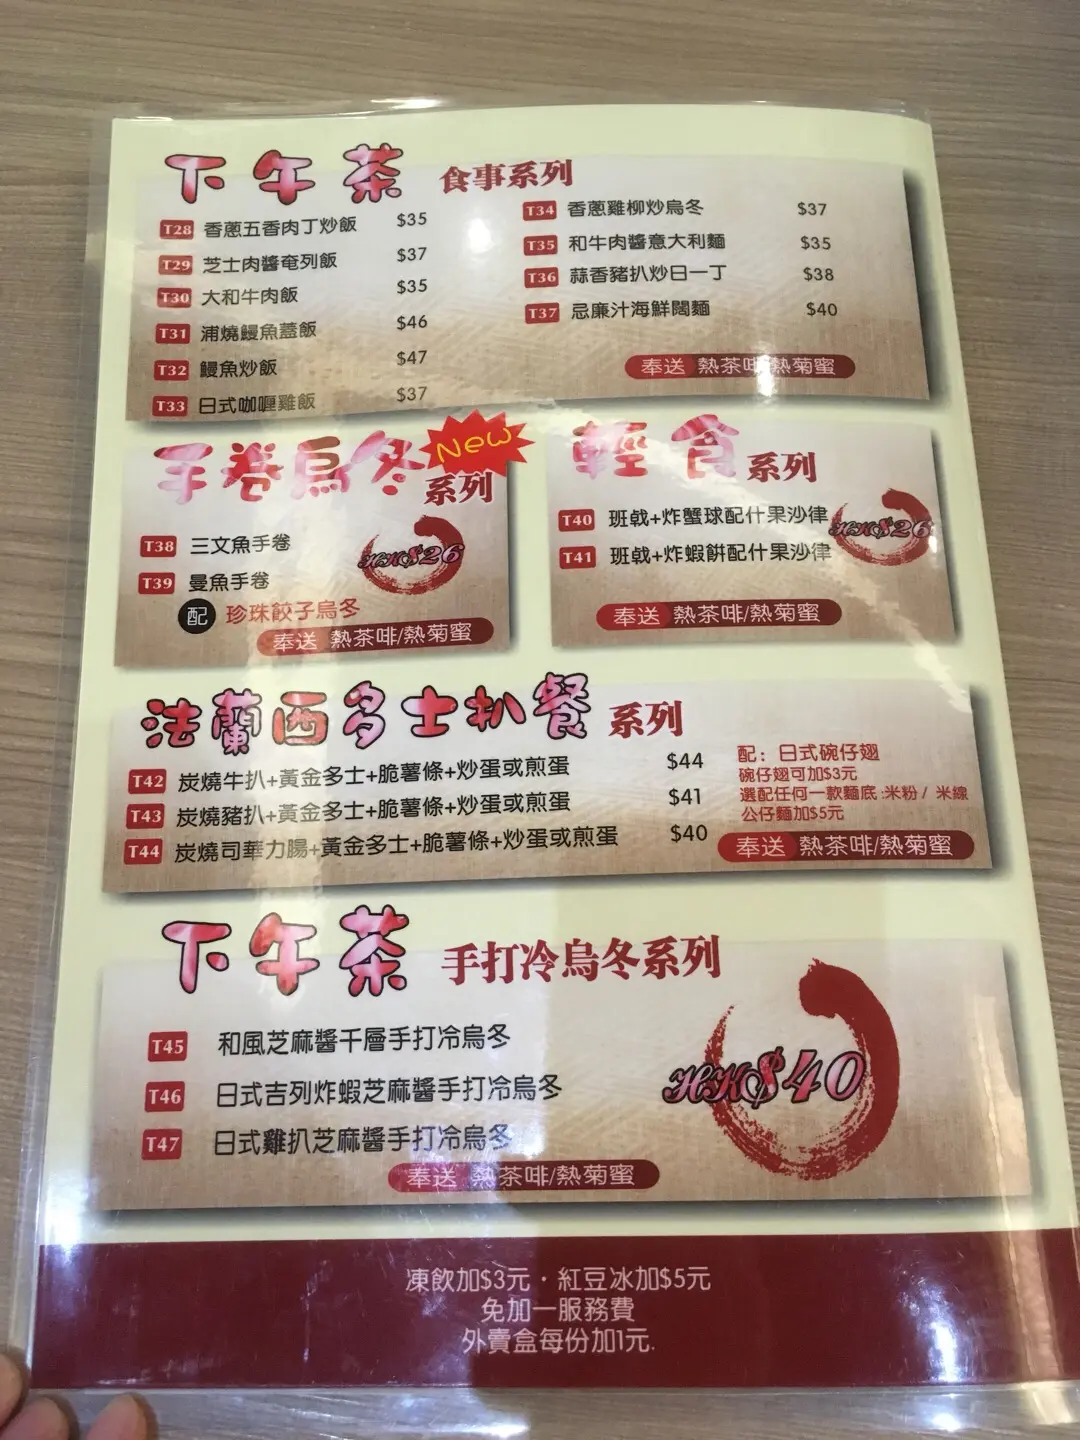 下午茶 食事系列
T28 香蔥五香肉丁炒飯 $35
T29 芝士肉醬奄列飯 $37
T30 大和牛肉飯 $35
T31 浦燒鰻魚蓋飯 $46
T32 鰻魚炒飯 $47
T33 日式咖喱雞飯 $37
T34 香蔥雞柳炒烏冬 $37
T35 和牛肉醬意大利麵 $35
T36 蒜香豬扒炒日一丁 $38
T37 忌廉汁海鮮闊麵 $40
奉送 熱茶啡/熱菊蜜
手卷烏冬 系列 New
T38 三文魚手卷
T39 曼魚手卷
HK$26
配 珍珠餃子烏冬
奉送 熱茶啡/熱菊蜜
輕食 系列
T40 班戟+炸蟹球配什果沙律
T41 班戟+炸蝦餅配什果沙律
HK$26
奉送 熱茶啡/熱菊蜜
法蘭西多士扒餐 系列
T42 炭燒牛扒+黃金多士+脆薯條+炒蛋或煎蛋 $44
T43 炭燒豬扒+黃金多士+脆薯條+炒蛋或煎蛋 $41
T44 炭燒司華力腸+黃金多士+脆薯條+炒蛋或煎蛋 $40
配：日式碗仔翅
碗仔翅可加$3元
選配任何一款麵底:米粉 / 米線
公仔麵加$5元
奉送 熱茶啡/熱菊蜜
下午茶 手打冷烏冬系列
T45 和風芝麻醬千層手打冷烏冬
T46 日式吉列炸蝦芝麻醬手打冷烏冬
T47 日式雞扒芝麻醬手打冷烏冬
HK$40
奉送 熱茶啡/熱菊蜜
凍飲加$3元・紅豆冰加$5元
免加一服務費
外賣盒每份加1元.